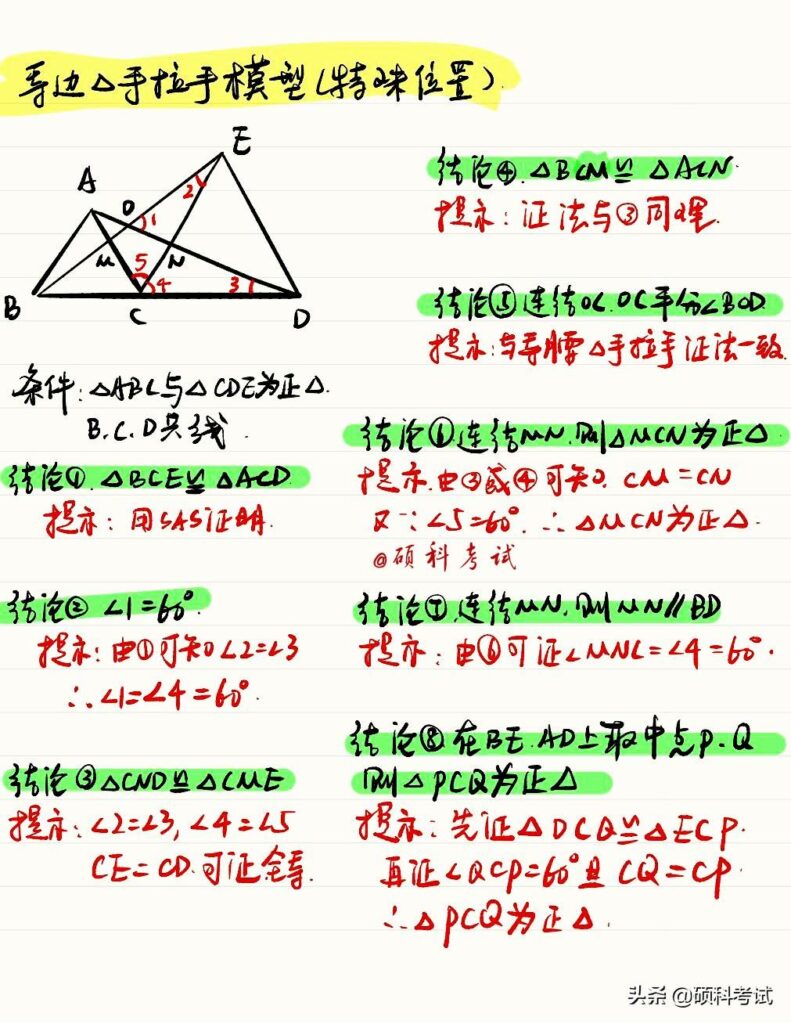 等边△手拉手模型(特殊位置)
E
A
O
1
2
M
5
N
4
3
B
C
D
条件:△ABC与△CDE为正△.
B.C.D共线.
结论①.△BCE≌△ACD.
提示:用SAS证明.
结论② ∠1=60°.
提示:由①可知∠2=∠3
∴∠1=∠4=60°.
结论③△CND≌△CME
提示:∠2=∠3,∠4=∠5
CE=CD.可证全等.
结论④.△BCM≌△ACN.
提示:证法与③同理.
结论⑤连结OC.OC平分∠BOD.
提示:与等腰△手拉手证法一致.
结论⑥连结MN.则△MCN为正△
提示.由③或④可知.CM=CN
又∵∠5=60°.∴△MCN为正△.
@硕科考试
结论⑦.连结MN.则MN∥BD
提示:由⑥可证∠MNC=∠4=60°.
结论⑧.在BE.AD上取中点P.Q
则△PCQ为正△
提示:先证△DCQ≌△ECP.
再证∠QCP=60°且CQ=CP
∴△PCQ为正△.
头条@硕科考试